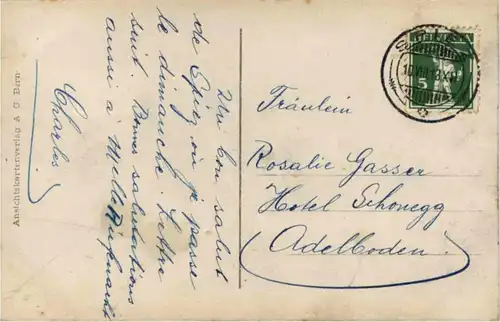 Un bon salut
de Spiez, où je passe
le dimanche. Lettre
suit. Bonnes salutations
aussi à Mlle
Charles
Ansichtskartenverlag A G Bern
HELVETIA
5
Fräulein
Rosalie Gasser
Hotel Schönegg
Adelboden.